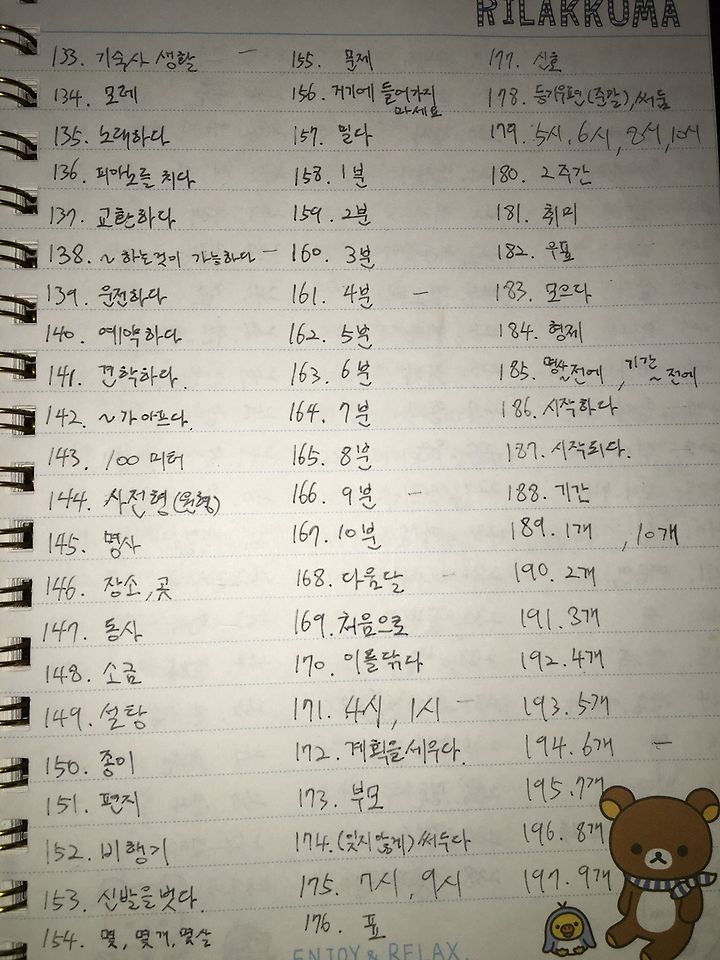 RILAKKUMA
133. 기숙사 생활 -
134. 모레
135. 노래하다
136. 피아노를 치다
137. 교환하다
138. ~하는것이 가능하다 -
139. 운전하다
140. 예약하다
141. 견학하다.
142. ~가 아프다.
143. 100 미터
144. 사전형(원형)
145. 명사
146. 장소, 곳
147. 동사
148. 소금
149. 설탕
150. 종이
151. 편지
152. 비행기
153. 신발을벗다.
154. 몇, 몇개, 몇살
155. 문제
156. 거기에 들어가지
마세요
157. 밀다
158. 1분
159. 2분
160. 3분
161. 4분 -
162. 5분
163. 6분
164. 7분
165. 8분
166. 9분 -
167. 10분
168. 다음달 -
169. 처음으로
170. 이를닦다
171. 4시, 1시 -
172. 계획을세우다.
173. 부모
174. (잊지않게)써두다
175. 7시, 9시
176. 표
177. 신호
178. 등기우편(준말), 써둠
179. 5시, 6시, 8시, 10시
180. 2주간
181. 취미
182. 우표
183. 모르다
184. 형제
185. 명사전에, 기간~전에
186. 시작하다
187. 시작되다.
188. 기간
189. 1개, 10개
190. 2개
191. 3개
192. 4개
193. 5개
194. 6개 -
195. 7개
196. 8개
197. 9개
ENJOY & RELAX.